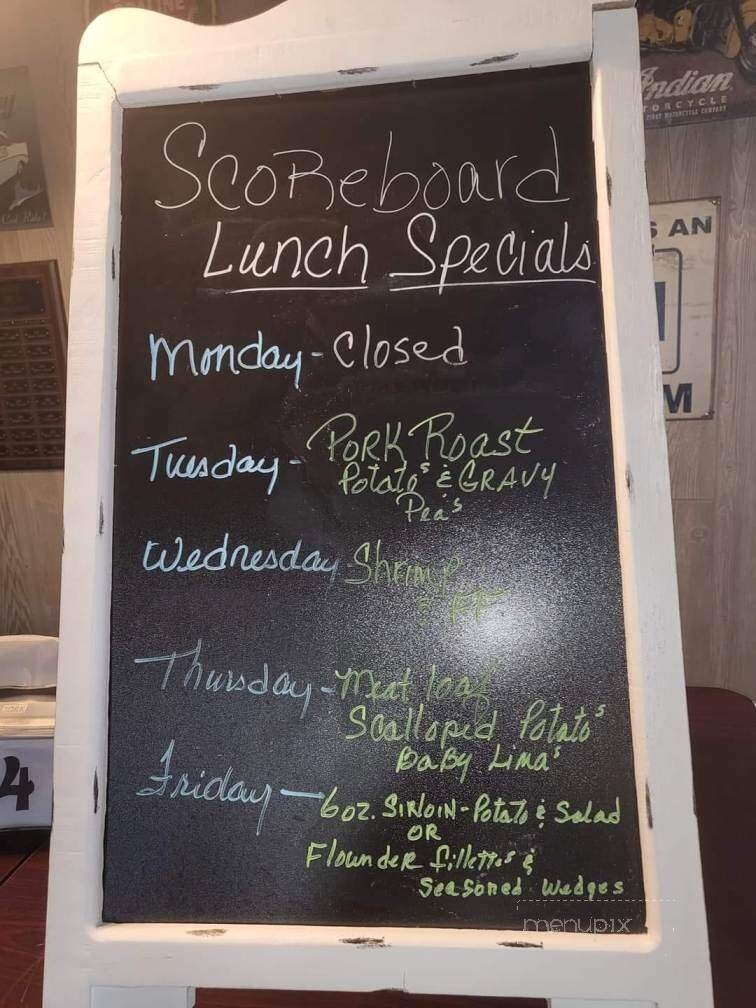 Scoreboard
Lunch Specials
Monday - Closed
Tuesday - Pork Roast
Potatos & Gravy
Peas
Wednesday Shrimp
& FF
Thursday - Meat loaf
Scalloped Potatos
Baby Limas
Friday - 6 oz. Sirloin - Potato & Salad
OR
Flounder fillettes &
Seasoned Wedges
Indian
MOTORCYCLE
S AN
M
4
menupix